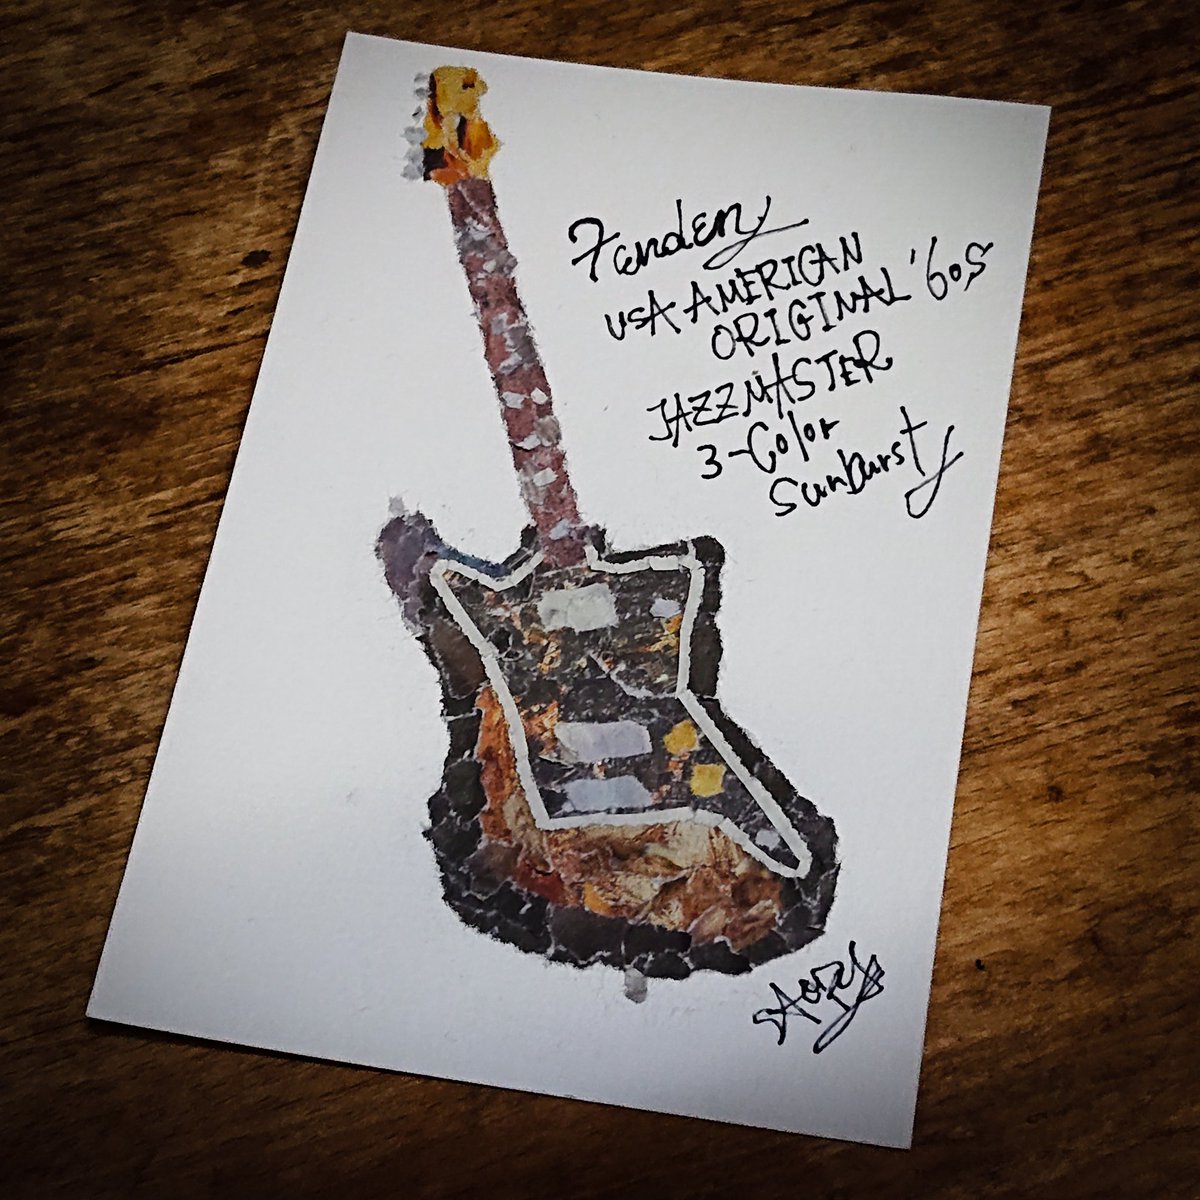 Fender
USA AMERICAN
ORIGINAL '60s
JAZZMASTER
3-Color
Sunburst